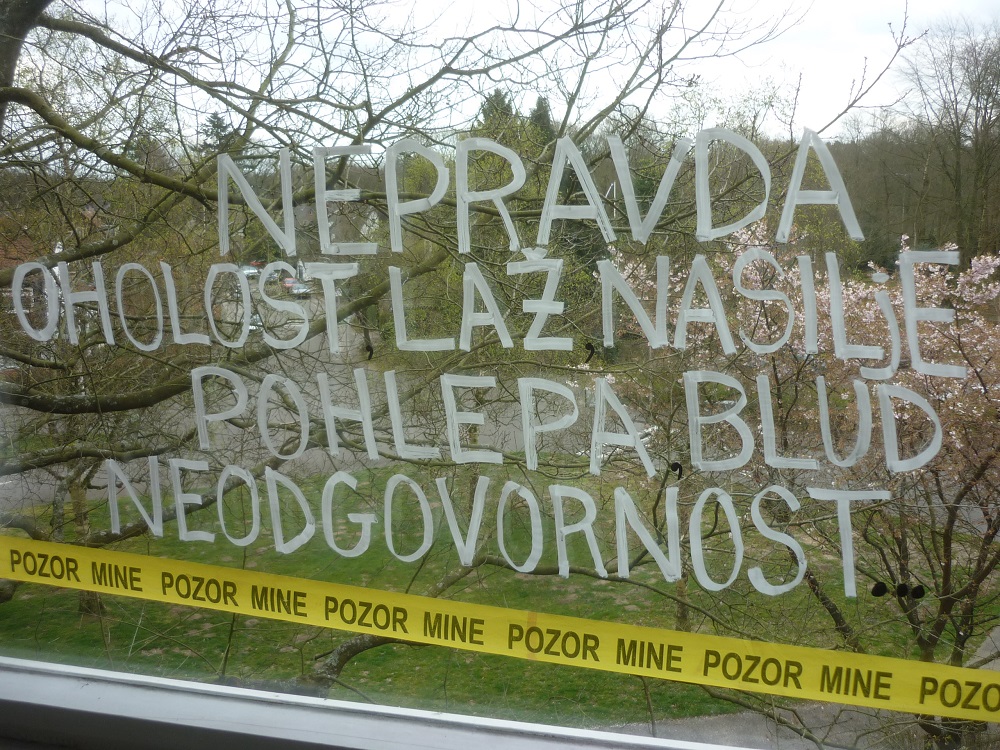 NEPRAVDA
OHOLOST LAŽ, NASILjE
POHLEPA, BLUD
NEODGOVORNOST...
POZOR MINE POZOR MINE POZOR MINE POZOR MINE POZOR MINE POZO